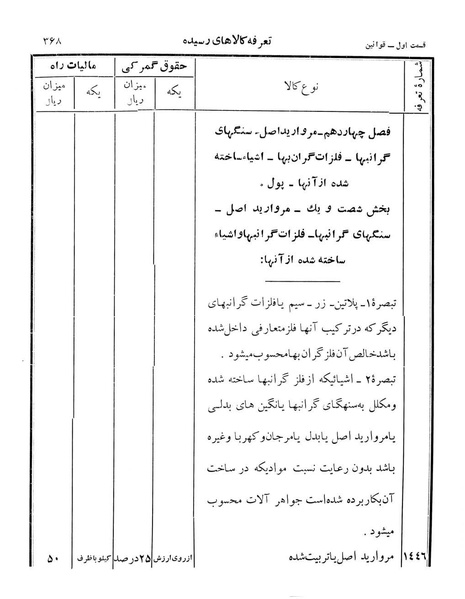 قسمت اول ــ قوانین تعرفه کالاهای رسیده ۳۶۸
شماره تعرفه نوع کالا حقوق گمرکی مالیات راه
یکه میزان ریال یکه میزان ریال
فصل چهاردهم ــ مروارید اصل ــ سنگهای
گرانبها ــ فلزات گران بها ــ اشیاء ساخته
شده از آنها ــ پول .
بخش شصت و یك ــ مروارید اصل ــ
سنگهای گرانبها ــ فلزات گرانبها و اشیاء
ساخته شده از آنها:
تبصرهٔ ۱ــ پلاتین ــ زر ــ سیم یا فلزات گرانبهای
دیگر که در ترکیب آنها فلز متعارفی داخل شده
باشد خالص آن فلز گران بها محسوب میشود .
تبصرهٔ ۲ ــ اشیائیکه از فلز گرانبها ساخته شده
ومکلل به سنهگای گرانبها یا نگین های بدلی
یا مروارید اصل یا بدل یا مرجان و کهربا و غیره
باشد بدون رعایت نسبت موادیکه در ساخت
آن بکار برده شده است جواهر آلات محسوب
میشود .
۱۴۴۶ مروارید اصل یا تربیت شده از روی ارزش ۲۵ درصد کیلو با ظرف ۵۰